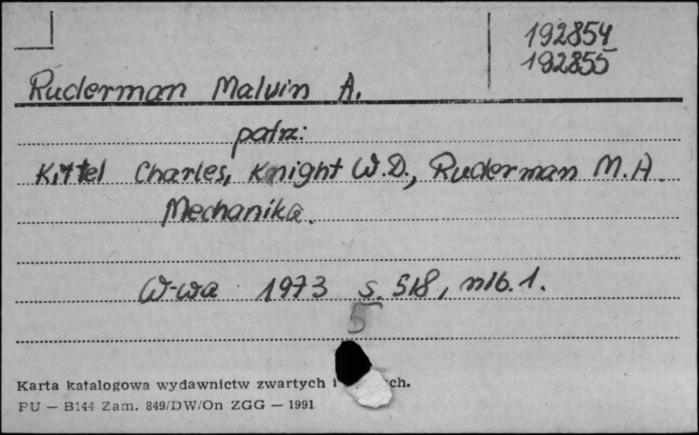 192854
192855
Ruderman Malvin A.
patrz:
Kittel Charles, Knight W.D., Ruderman M.A.
Mechanika.
W-wa 1973 s. 518, nlb. 1.
5
Karta katalogowa wydawnictw zwartych i
PU — B144 Zam. 849/DW/On ZGG — 1991